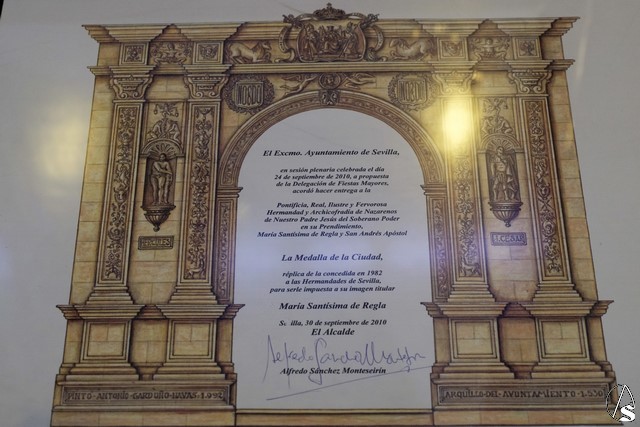 El Excmo. Ayuntamiento de Sevilla,
en sesión plenaria celebrada el día
24 de septiembre de 2010, a propuesta
de la Delegación de Fiestas Mayores,
acordó hacer entrega a la
Pontificia, Real, Ilustre y Fervorosa
Hermandad y Archicofradía de Nazarenos
de Nuestro Padre Jesús del Soberano Poder
en su Prendimiento,
María Santísima de Regla y San Andrés Apóstol
La Medalla de la Ciudad,
réplica de la concedida en 1982
a las Hermandades de Sevilla,
para serle impuesta a su imagen titular
María Santísima de Regla
Se illa, 30 de septiembre de 2010
El Alcalde
Alfredo Sánchez Monteseirín
PINTO·ANTONIO·GARDUÑO·NAVAS·1.991
ARQUILLO·DEL·AYUNTAMIENTO·1.530